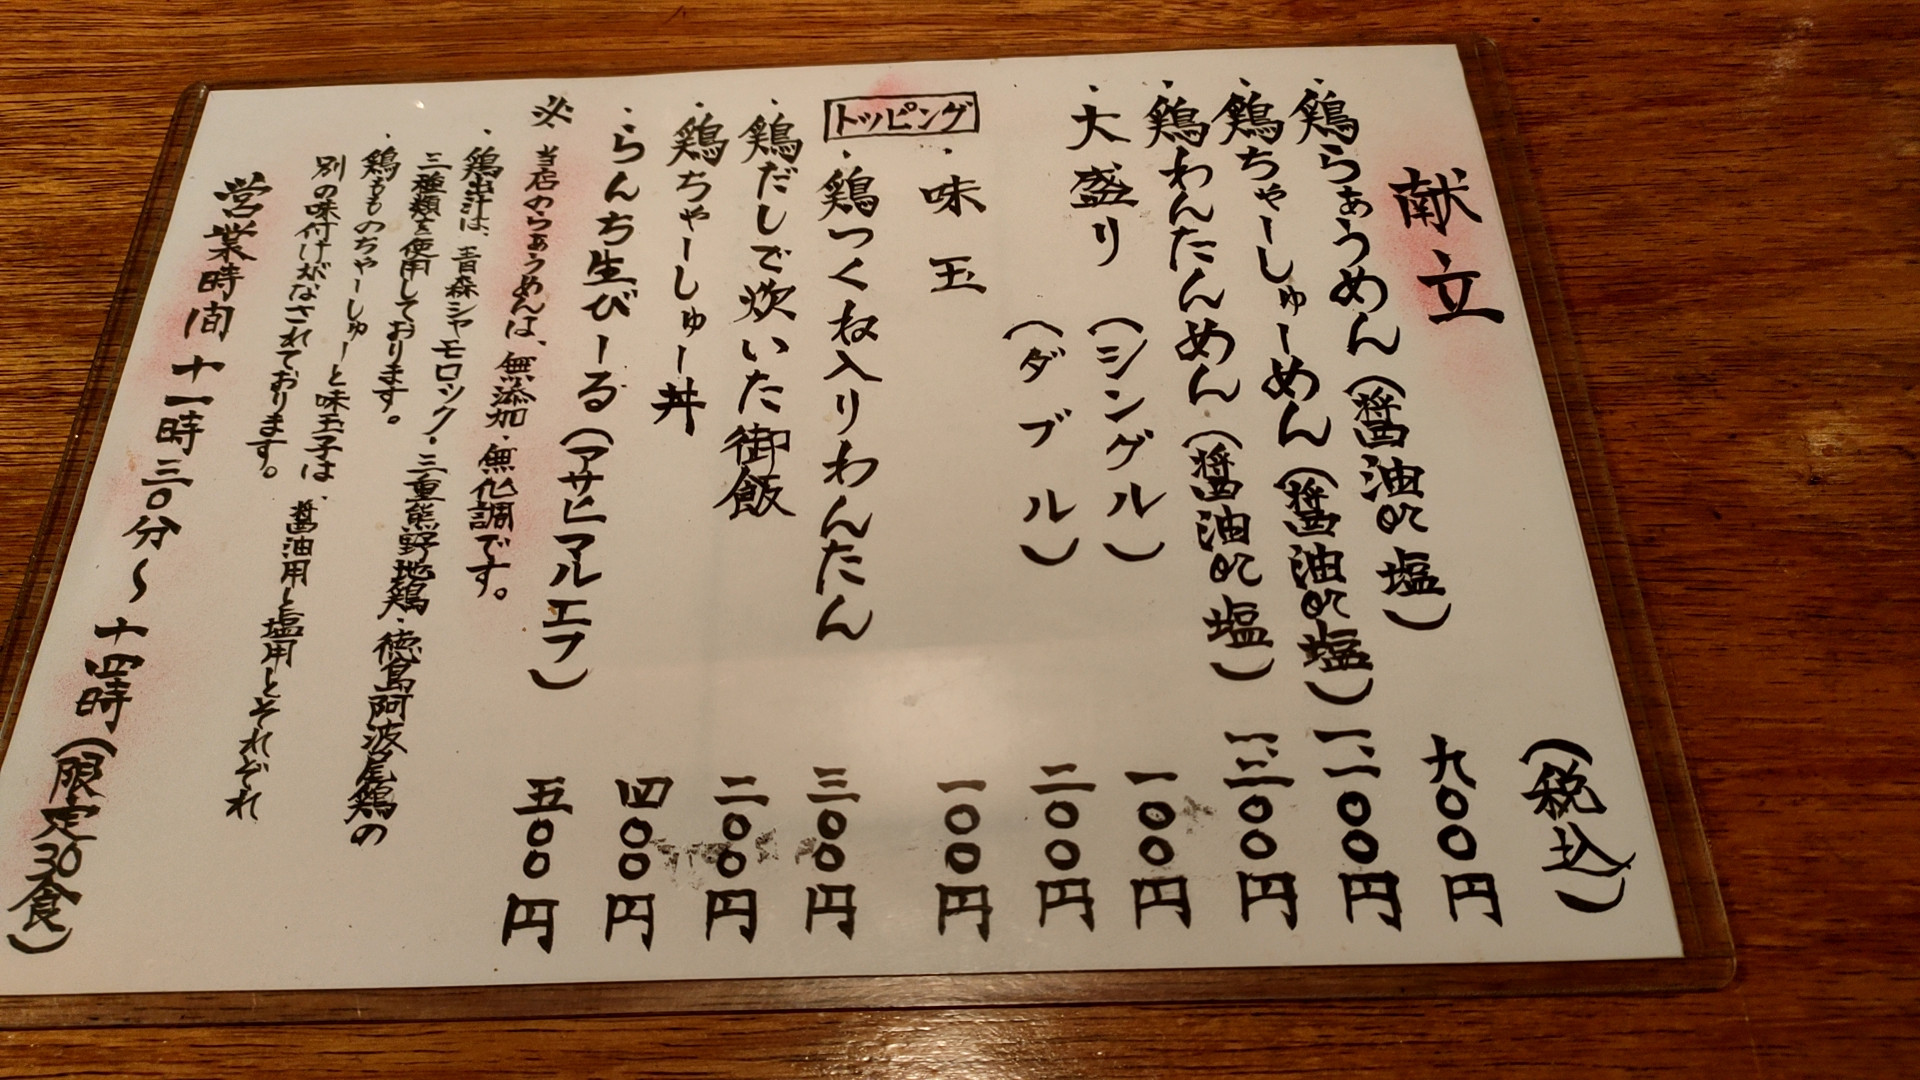 献立 (税込)
・鶏らぁうめん(醤油or塩) 九〇〇円
・鶏ちゃーしゅーめん(醤油or塩) 一、二〇〇円
・鶏わんたんめん(醤油or塩) 一、三〇〇円
・大盛り (シングル) 一〇〇円
(ダブル) 二〇〇円
トッピング
・味玉 一〇〇円
・鶏つくね入りわんたん 三〇〇円
・鶏だしで炊いた御飯 二〇〇円
・鶏ちゃーしゅー丼 四〇〇円
・らんち生びーる(アサヒマルエフ) 五〇〇円
※ 当店のらぁうめんは、無添加・無化調です。
・鶏出汁は、青森シャモロック・三重熊野地鶏・徳島阿波尾鶏の
三種類を使用しております。
・鶏もものちゃーしゅーと味玉子は、醤油用と塩用とそれぞれ
別の味付けがなされております。
営業時間 十一時三〇分〜十四時(限定30食)